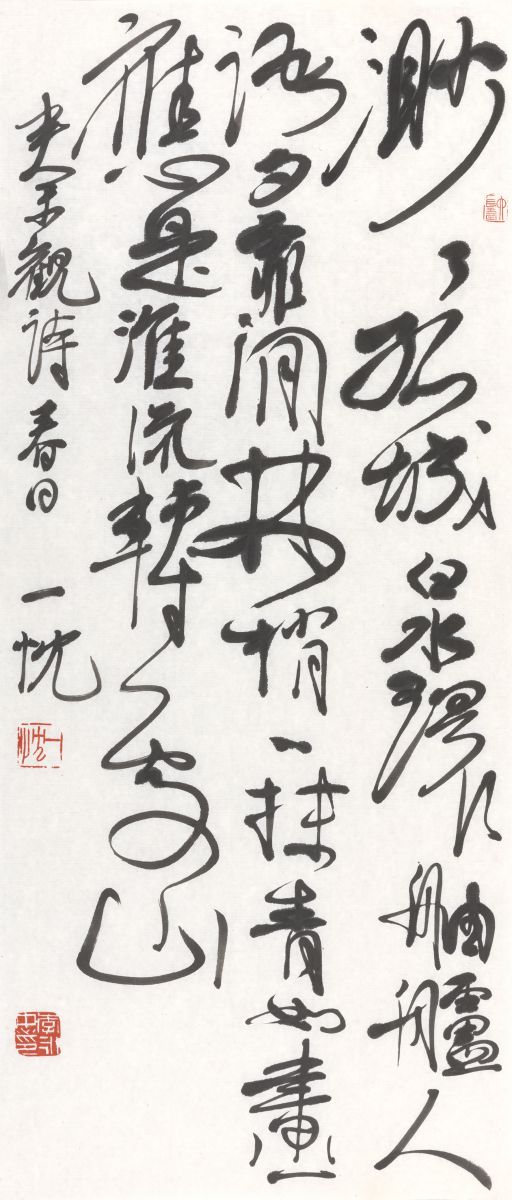 渺々孤城白水環舳艫人
語夕霏間林梢一抹青如畫
應是淮流轉處山
秦觀詩春日 一忱